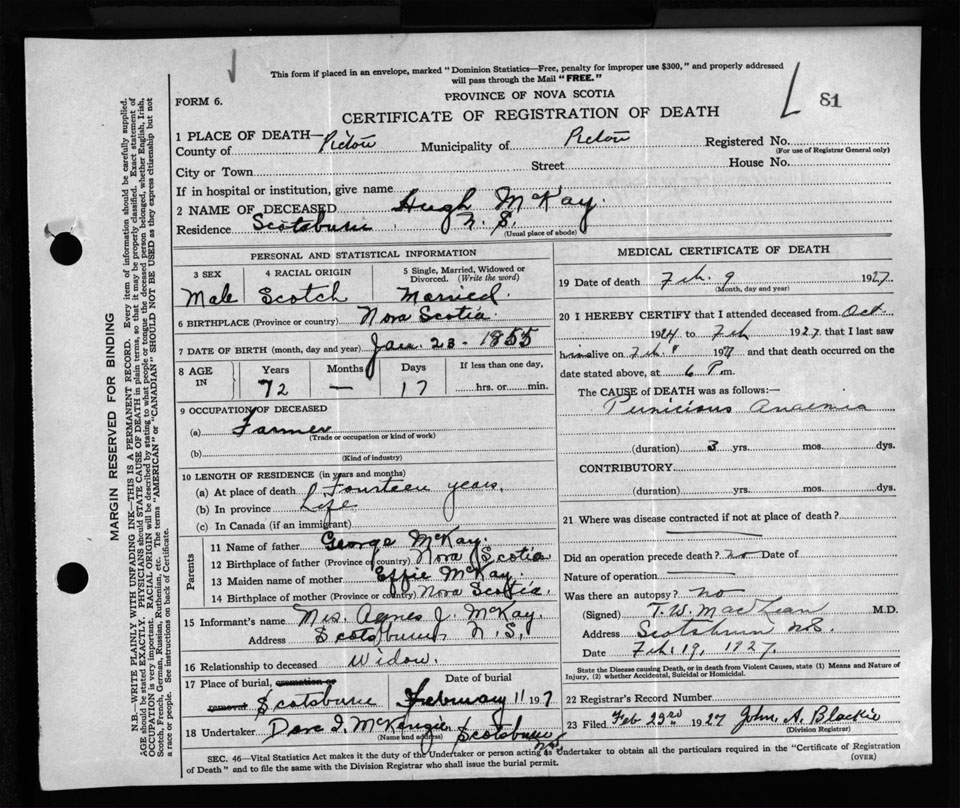 This form if placed in an envelope, marked "Dominion Statistics—Free, penalty for improper use $300," and properly addressed
will pass through the Mail "FREE."
PROVINCE OF NOVA SCOTIA
FORM 6.
CERTIFICATE OF REGISTRATION OF DEATH
81
1 PLACE OF DEATH—
County of Pictou Municipality of Pictou Registered No.
(For use of Registrar General only)
City or Town Street House No.
If in hospital or institution, give name
2 NAME OF DECEASED Hugh McKay.
Residence Scotsburn N. S.
(Usual place of abode)
PERSONAL AND STATISTICAL INFORMATION
3 SEX 4 RACIAL ORIGIN 5 Single, Married, Widowed or Divorced. (Write the word)
Male Scotch Married.
6 BIRTHPLACE (Province or country) Nova Scotia.
7 DATE OF BIRTH (month, day and year) Jan. 23 - 1855
8 AGE IN Years Months Days If less than one day,
72 — 17 hrs. or min.
9 OCCUPATION OF DECEASED
(a) Farmer
(Trade or occupation or kind of work)
(b)
(Kind of industry)
10 LENGTH OF RESIDENCE (in years and months)
(a) At place of death Fourteen years.
(b) In province Life
(c) In Canada (if an immigrant)
Parents
11 Name of father George McKay.
12 Birthplace of father (Province or country) Nova Scotia
13 Maiden name of mother Effie McKay.
14 Birthplace of mother (Province or country) Nova Scotia.
15 Informant's name Mrs. Agnes J. McKay.
Address Scotsburn, N. S.
16 Relationship to deceased Widow.
17 Place of burial, cremation or removal Date of burial
Scotsburn February 11 1927
18 Undertaker Dan I. McKenzie Scotsburn N.S.
(Name and address)
MEDICAL CERTIFICATE OF DEATH
19 Date of death Feb. 9 1927.
(Month, day and year)
20 I HEREBY CERTIFY that I attended deceased from Oct.
1924 to Feb 1927. that I last saw
him alive on Feb. 1927 and that death occurred on the
date stated above, at 6 P.m.
The CAUSE of DEATH was as follows:—
Pernicious Anaemia
(duration) 3 yrs. mos. dys.
CONTRIBUTORY
(duration) yrs. mos. dys.
21 Where was disease contracted if not at place of death?
Did an operation precede death? no Date of
Nature of operation
Was there an autopsy? no
(Signed) T. W. MacLean M.D.
Address Scotsburn N.S.
Date Feb. 19, 1927.
State the Disease causing Death, or in death from Violent Causes, state (1) Means and Nature of
Injury, (2) whether Accidental, Suicidal or Homicidal.
22 Registrar's Record Number
23 Filed Feb 23rd 1927 John A. Blackie
(Division Registrar)
SEC. 46—Vital Statistics Act makes it the duty of the Undertaker or person acting as Undertaker to obtain all the particulars required in the "Certificate of Registration
of Death" and to file the same with the Division Registrar who shall issue the burial permit.
(OVER)
MARGIN RESERVED FOR BINDING
N.B.—WRITE PLAINLY WITH UNFADING INK—THIS IS A PERMANENT RECORD. Every item of information should be carefully supplied.
AGE should be stated EXACTLY. PHYSICIANS should STATE CAUSE OF DEATH in plain terms, so that it may be properly classified. Exact statement of
OCCUPATION is very important. RACIAL ORIGIN will be described by stating to what people or tongue the deceased person belonged, whether English, Irish,
Scotch, French, German, Russian, Ruthenian, etc. The terms "AMERICAN" or "CANADIAN" SHOULD NOT BE USED as they express citizenship but not
a race or people. See instructions on back of Certificate.